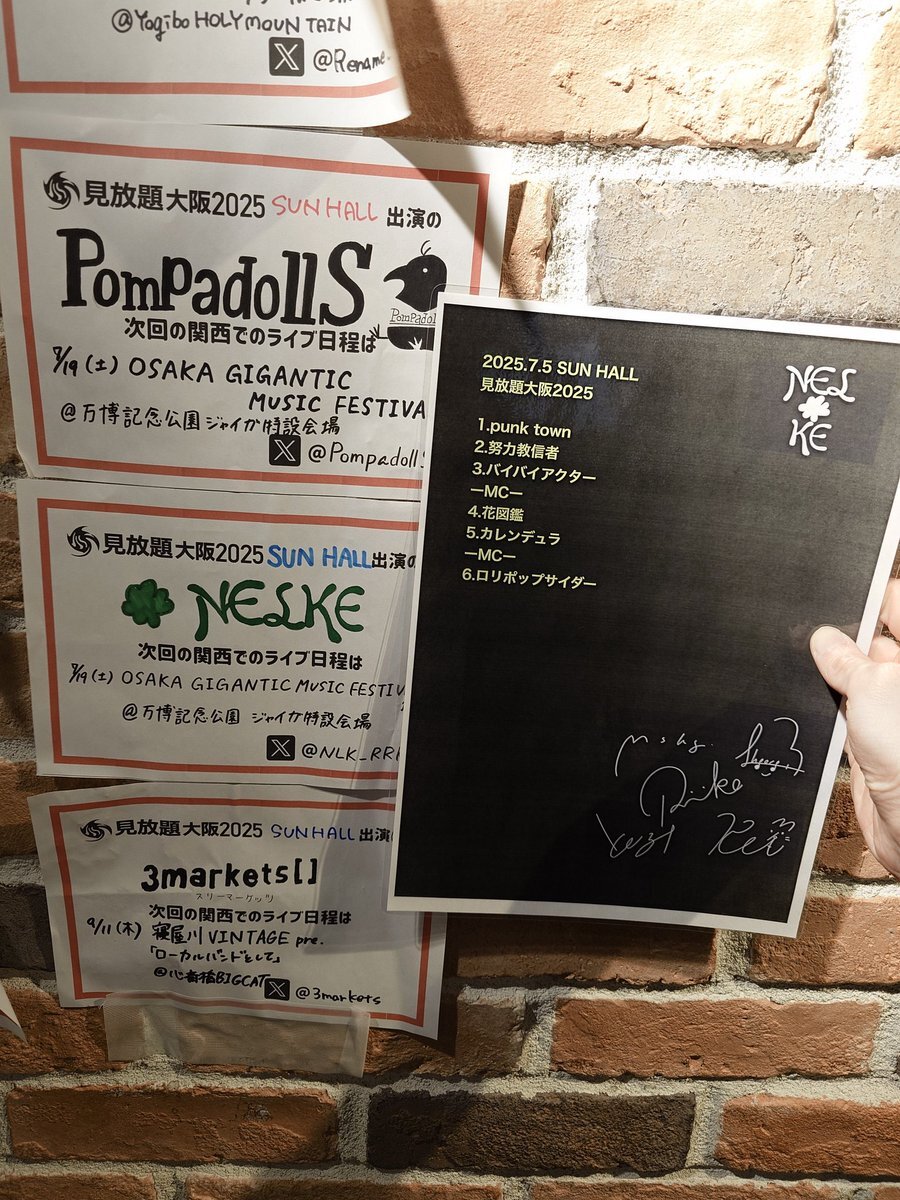 @Yogibo HOLY MOUNTAIN
X @Rename_
見放題大阪2025 SUN HALL 出演の
PompadollS
PompadollS
次回の関西でのライブ日程は
7/19(土) OSAKA GIGANTIC
MUSIC FESTIVA
@万博記念公園 ジャイガ特設会場
X @PompadollS
見放題大阪2025 SUN HALL 出演の
NELKE
次回の関西でのライブ日程は
7/19(土) OSAKA GIGANTIC MUSIC FESTIV
@万博記念公園 ジャイガ特設会場
X @NLK_RR
見放題大阪2025 SUN HALL 出演の
3markets[]
スリーマーケッツ
次回の関西でのライブ日程は
9/11(木) 寝屋川VINTAGE pre.
「ローカルバンドとして」
@心斎橋BIGCAT
X @3markets
2025.7.5 SUN HALL
見放題大阪2025
NEL
KE
1.punk town
2.努力教信者
3.バイバイアクター
ーMCー
4.花図鑑
5.カレンデュラ
ーMCー
6.ロリポップサイダー
Riiko